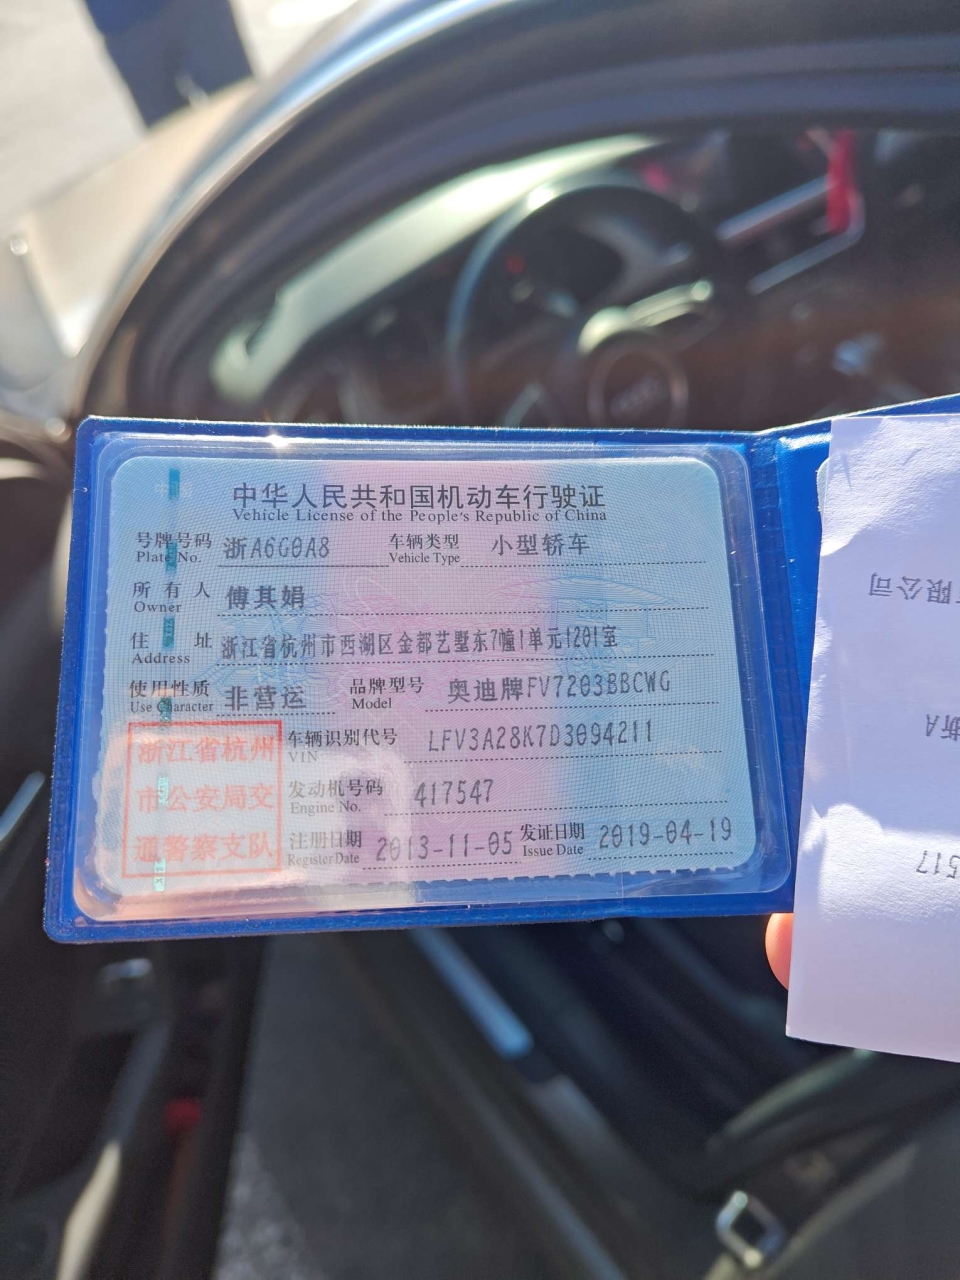 中华人民共和国机动车行驶证
Vehicle License of the People's Republic of China
号牌号码 浙A6G0A8 车辆类型 小型轿车
Plate No. Vehicle Type
所有人 傅其娟
Owner
住址 浙江省杭州市西湖区金都艺墅东7幢1单元1201室
Address
使用性质 非营运 品牌型号 奥迪牌FV7203BBCWG
Use Character Model
浙江省杭州
市公安局交
通警察支队
车辆识别代号 LFV3A28K7D3094211
VIN
发动机号码 417547
Engine No.
注册日期 2013-11-05 发证日期 2019-04-19
Register Date Issue Date
有限公司
浙A
517